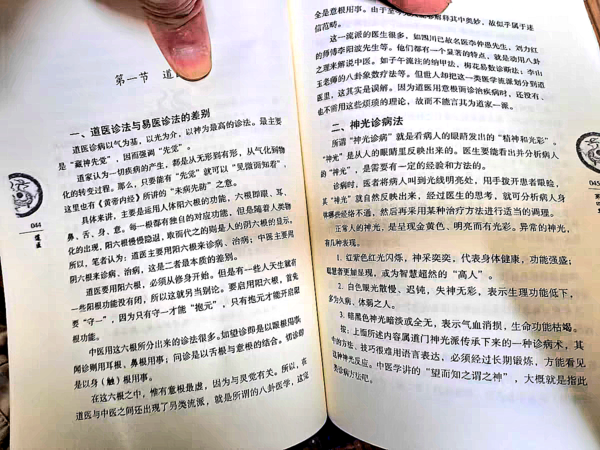 第一节 道
一、道医诊法与易医诊法的差别
道医诊病以气为基，以光为介，以神为最高的诊法。最主要
是“藏神先觉”，因而强调“先觉”。
道家认为一切疾病的产生，都是从无形到有形，从气化到物
化的转变过程。那么，只要能有“先觉”就可以“见微而知著”，
这里也有《黄帝内经》所讲的“未病先防”之意。
具体来讲，主要是运用人体阳六根的功能，六根即眼、耳、
鼻、舌、身、意。每一根都有独自的对应功能，但是随着人类物
化的出现，阳六根慢慢隐退，取而代之的则是人的阴六根的显示。
所以，笔者认为：道医主要用阳六根来诊病、治病；中医主要用
阴六根来诊病、治病，这是二者最本质的差别。
道医要用阳六根，必须从修身开始。但是有一些人天就有
一些阳根功能没有闭，所以这就另当别论。要启用阳六根，首先
要“守一”，因为只有守一才能“抱元”，只有抱元才能开启眼
根功能。
中医用这六根所分出来的诊法很多。如望诊即是以眼根用事，
闻诊则用耳根、鼻根用事；问诊是以舌根与意根的结合。切诊即
是以身（触）根用事。
在这六根之中，惟有意根最虚，因为与灵觉有关。所以，在
道医与中医之间还出现了另类流派，就是所谓的八卦医学，这完
044
道医
全是意根用事。由于至今
信范畴。
这一流派的医生很多，如四川已故名医李仲愚先生、刘力红
的师傅李阳波先生等。他们都有一个显著的特点，就是动用八卦
之理来解说中医。如子午流注的纳甲法，梅花易数诊断法；李山
玉老师的八卦象数疗法等。但世人却把这一类医学流派划分到道
医里，这其实是误解。因为道医用意根而诊治疾病时，还没有、
也不需用这些烦琐的理论，故而不能言其为道家一派。
二、神光诊病法
所谓“神光诊病”就是看病人的眼睛发出的“精神和光彩”。
“神光”是从人的眼睛里反映出来的。医生要能看出并分析病人
的“神光”，是需要有一定的经验和方法的。
诊病时，医者将病人叫到光线明亮处，用手拨开患者眼睑，
其“神光”就自然反映出来，经过医生的思考，就可分析病人身
体哪些经络不通，然后再采用某种治疗方法进行适当的调理。
正常人的神光，是呈现金黄色、明亮而有光彩。异常的神光，
有几种表现。
1. 红紫色红光闪烁，神采奕奕，代表身体健康，功能强盛；
聪慧者更加呈现，或为智慧超然的“高人”。
2. 白色眼光散慢、迟钝，失神无彩，表示生理功能低下，
多为久病、体弱之人。
3. 暗黑色神光暗淡或全无，表示气血消损，生命功能枯竭。
按：上面所述内容属道门神光派传承下来的一种诊病术，其
中的方法、技巧很难用语言表达，必须经过长期锻炼，方能看见
这种神光反应。中医学讲的“望而知之谓之神”，大概就是指此
类诊病方法吧。
045